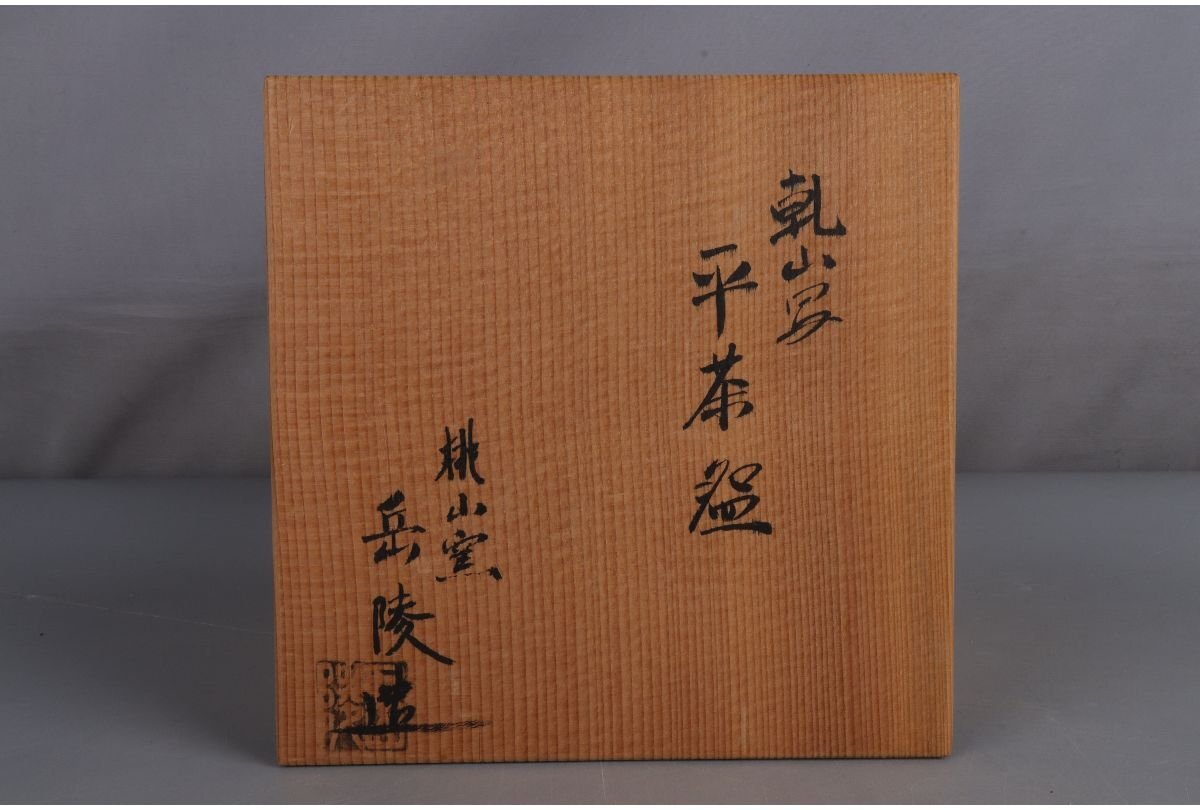 乾山写
平茶盌
桃山窯
岳陵造